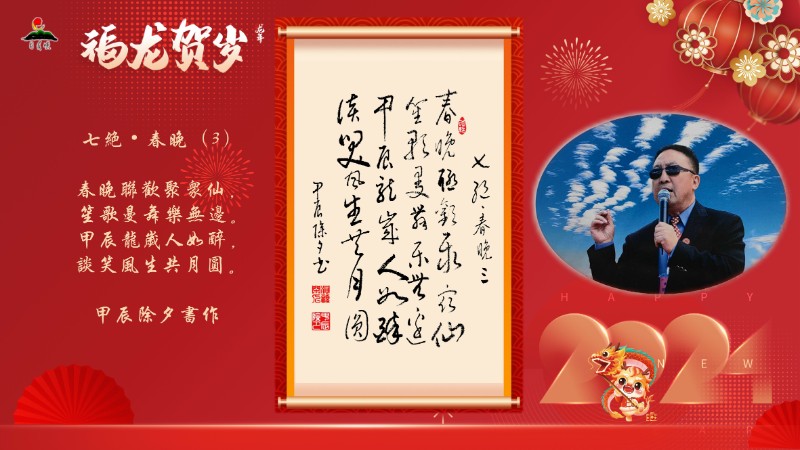 福龙贺岁
七絶·春晚（3）
春晚聯歡聚衆仙，
笙歌曼舞樂無邊。
甲辰龍歲人如醉，
談笑風生共月圓。
甲辰除夕書作
七絶·春晚三
春晚聯歡聚衆仙
笙歌曼舞樂無邊
甲辰龍歲人如醉
談笑風生共月圓
甲辰除夕書
HAPPY
2024
NEW